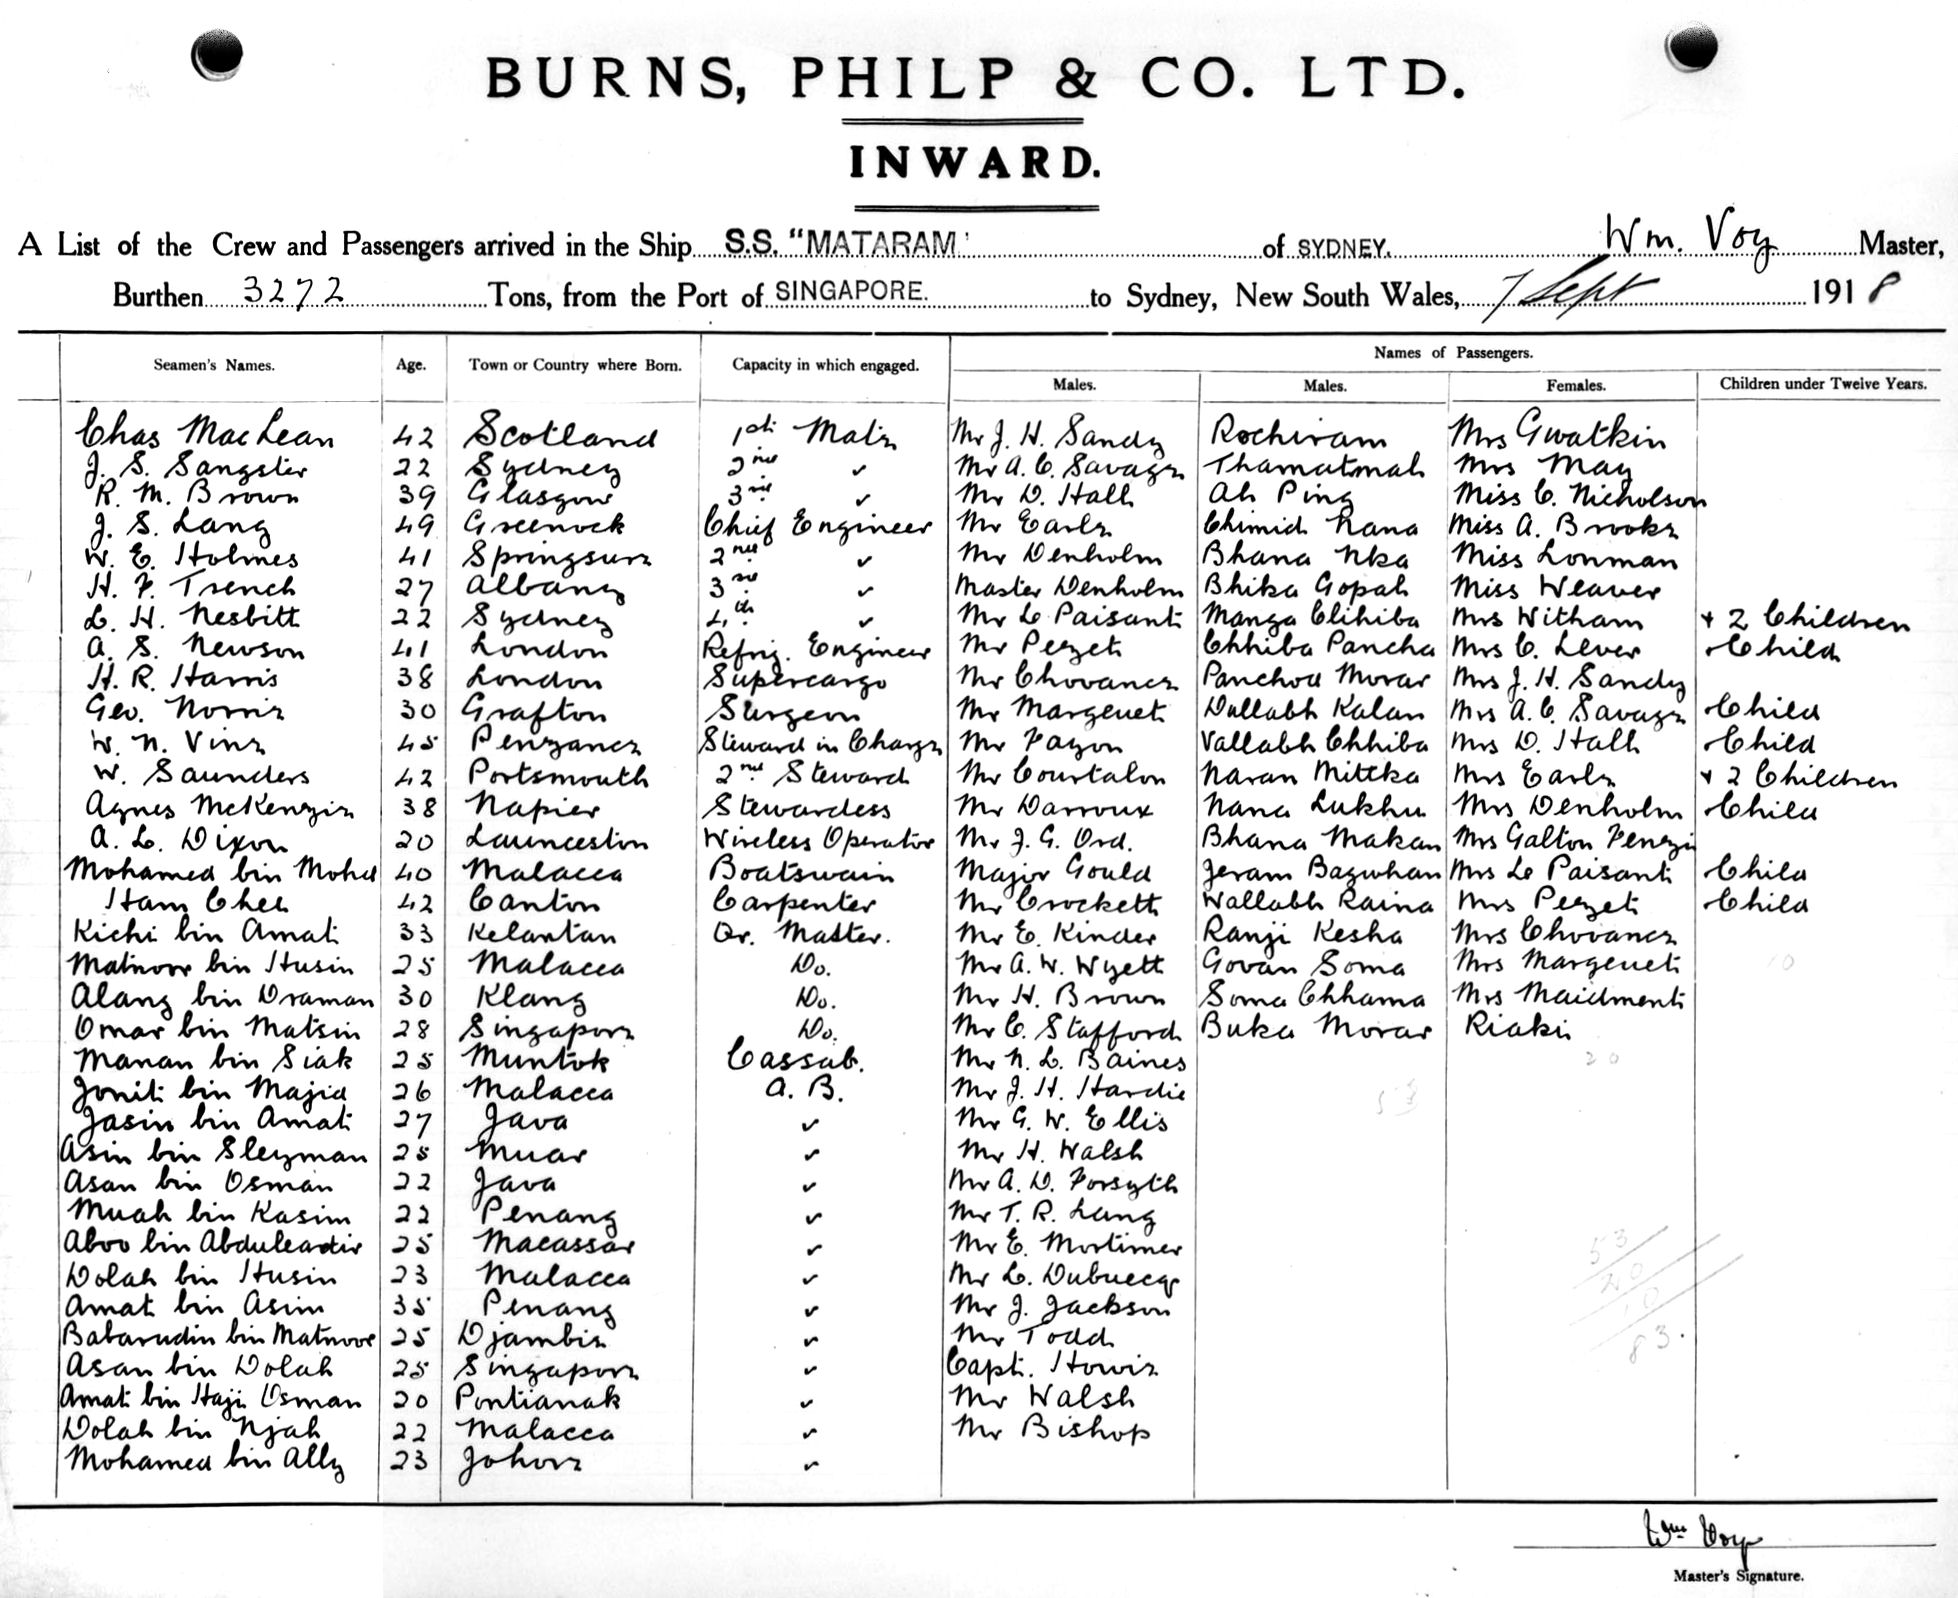 BURNS, PHILP & CO. LTD.
INWARD.
A List of the Crew and Passengers arrived in the Ship S.S. "MATARAM" of SYDNEY. Wm. Voy Master,
Burthen 3272 Tons, from the Port of SINGAPORE. to Sydney, New South Wales, 7 Sept 1918
Names of Passengers.
Seamen's Names. Age. Town or Country where Born. Capacity in which engaged. Males. Males. Females. Children under Twelve Years.
Chas MacLean 42 Scotland 1st Mate Mr J. H. Sandy Rochiram Mrs Gwatkin
J. S. Sangster 22 Sydney 2nd ✓ Mr A. C. Savage Thamatmah Mrs May
R. M. Brown 39 Glasgow 3rd ✓ Mr D. Hall Ah Ping Miss C. Nicholson
J. S. Lang 49 Greenock Chief Engineer Mr Earle Chimid Nana Miss A. Brooke
W. E. Holmes 41 Springsure 2nd ✓ Mr Denholm Bhana Nka Miss Lonman
H. F. Trench 27 Albany 3rd ✓ Master Denholm Bhika Gopal Miss Weaver
L. H. Nesbitt 22 Sydney 4th ✓ Mr Le Paisant Manga Chhiba Mrs Witham + 2 Children
A. S. Newson 41 London Refrig. Engineer Mr Pezet Chhiba Pancha Mrs C. Lever Child
H. R. Harris 38 London Supercargo Mr Chovance Panchoa Morar Mrs J. H. Sandy
Geo. Norrie 30 Grafton Surgeon Mr Margenet Dullabh Kalan Mrs A. C. Savage Child
W. N. Vine 45 Penzance Steward in Charge Mr Fazon Vallabh Chhiba Mrs D. Hall Child
W. Saunders 42 Portsmouth 2nd Steward Mr Courtalon Naran Mittha Mrs Earle + 2 Children
Agnes McKenzie 38 Napier Stewardess Mr Darroux Nana Lukhu Mrs Denholm Child
A. L. Dixon 20 Launceston Wireless Operator Mr J. G. Ord. Bhana Makan Mrs Galton Fenzi
Mohamed bin Mohd 40 Malacca Boatswain Major Gould Jeram Bagwhan Mrs Le Paisant Child
Ham Chee 42 Canton Carpenter Mr Crockett Wallabh Raina Mrs Pezet Child
Kichi bin Amat 33 Kelantan Qr. Master. Mr E. Kinder Ranji Kesha Mrs Chovance
Matnoor bin Husin 25 Malacca Do. Mr A. W. Wyett Govan Soma Mrs Margenet 10
Alang bin Draman 30 Klang Do. Mr H. Brown Soma Chhama Mrs Maidment
Omar bin Matsin 28 Singapore Do. Mr C. Stafford Buka Morar Riaki
Manan bin Siak 25 Muntok Cassab. Mr N. L. Baines 20
Jonit bin Majid 26 Malacca A. B. Mr J. H. Hardie 53
Jasin bin Amat 27 Java ✓ Mr G. W. Ellis
Asin bin Sleyman 25 Muar ✓ Mr H. Walsh
Asan bin Osman 22 Java ✓ Mr A. D. Forsyth
Muah bin Kasim 22 Penang ✓ Mr T. R. Lang
Aboo bin Abduleadir 25 Macassar ✓ Mr E. Mortimer 53
Dolah bin Husin 23 Malacca ✓ Mr L. Dubuecq 20
Amat bin Asim 35 Penang ✓ Mr J. Jackson 10
Babarudin bin Matnoor 25 Djambie ✓ Mr Todd 83.
Asan bin Dolah 25 Singapore ✓ Capt. Howie
Amat bin Haji Osman 20 Pontianak ✓ Mr Walsh
Dolah bin Njah 22 Malacca ✓ Mr Bishop
Mohamed bin Ally 23 Johore ✓
Wm Voy
Master's Signature.